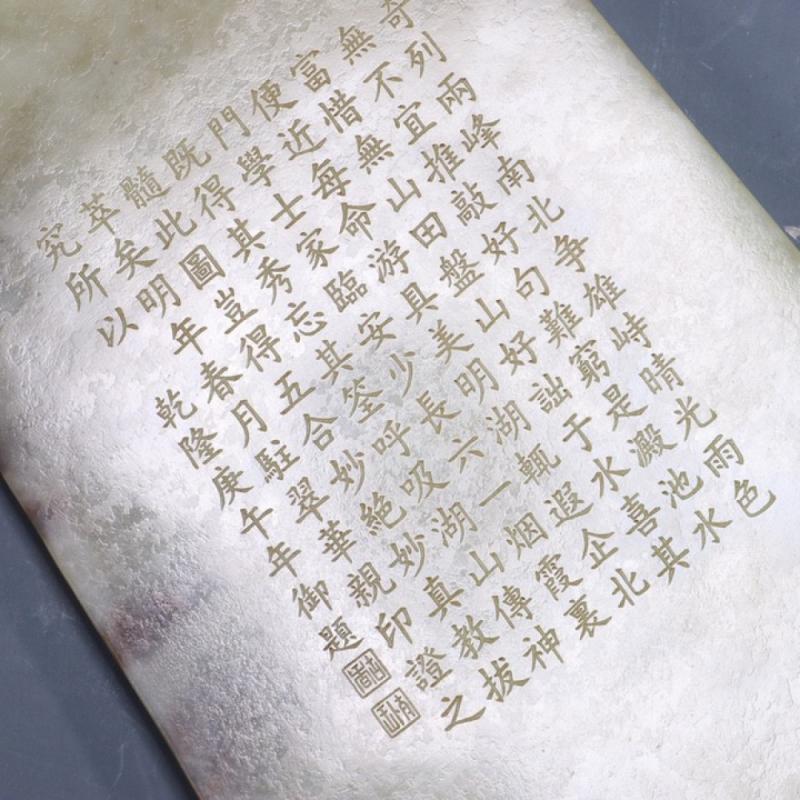 奇列兩峰南北争雄峙晴光雨色
無不宜推敲好句難窮是澱池水
富惜無山田盤山好詘于水喜其
便近每命游具美明湖輒遐企北
門學士家臨安少長六一烟霞裏
既得其秀忘其筌呼吸湖山傳神
髓此圖豈得五合妙絕妙真教拔
萃矣明年春月駐翠華親印證之
究所以
乾隆庚午年御題